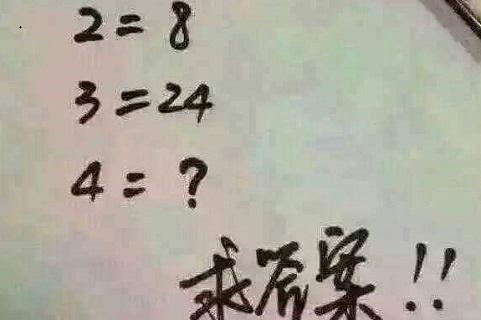 2=8
3=24
4=?
求答案!!